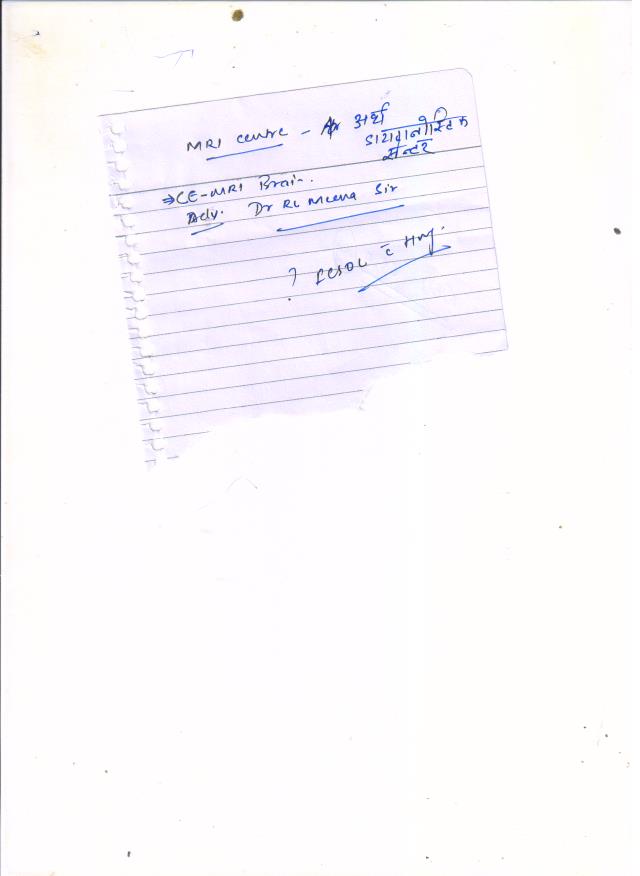 MRI Centre - अर्थ
डायग्नोस्टिक
सेन्टर
⇒ CE-MRI Brain.
Adv. Dr RL Meena Sir
? ICSOL c̄